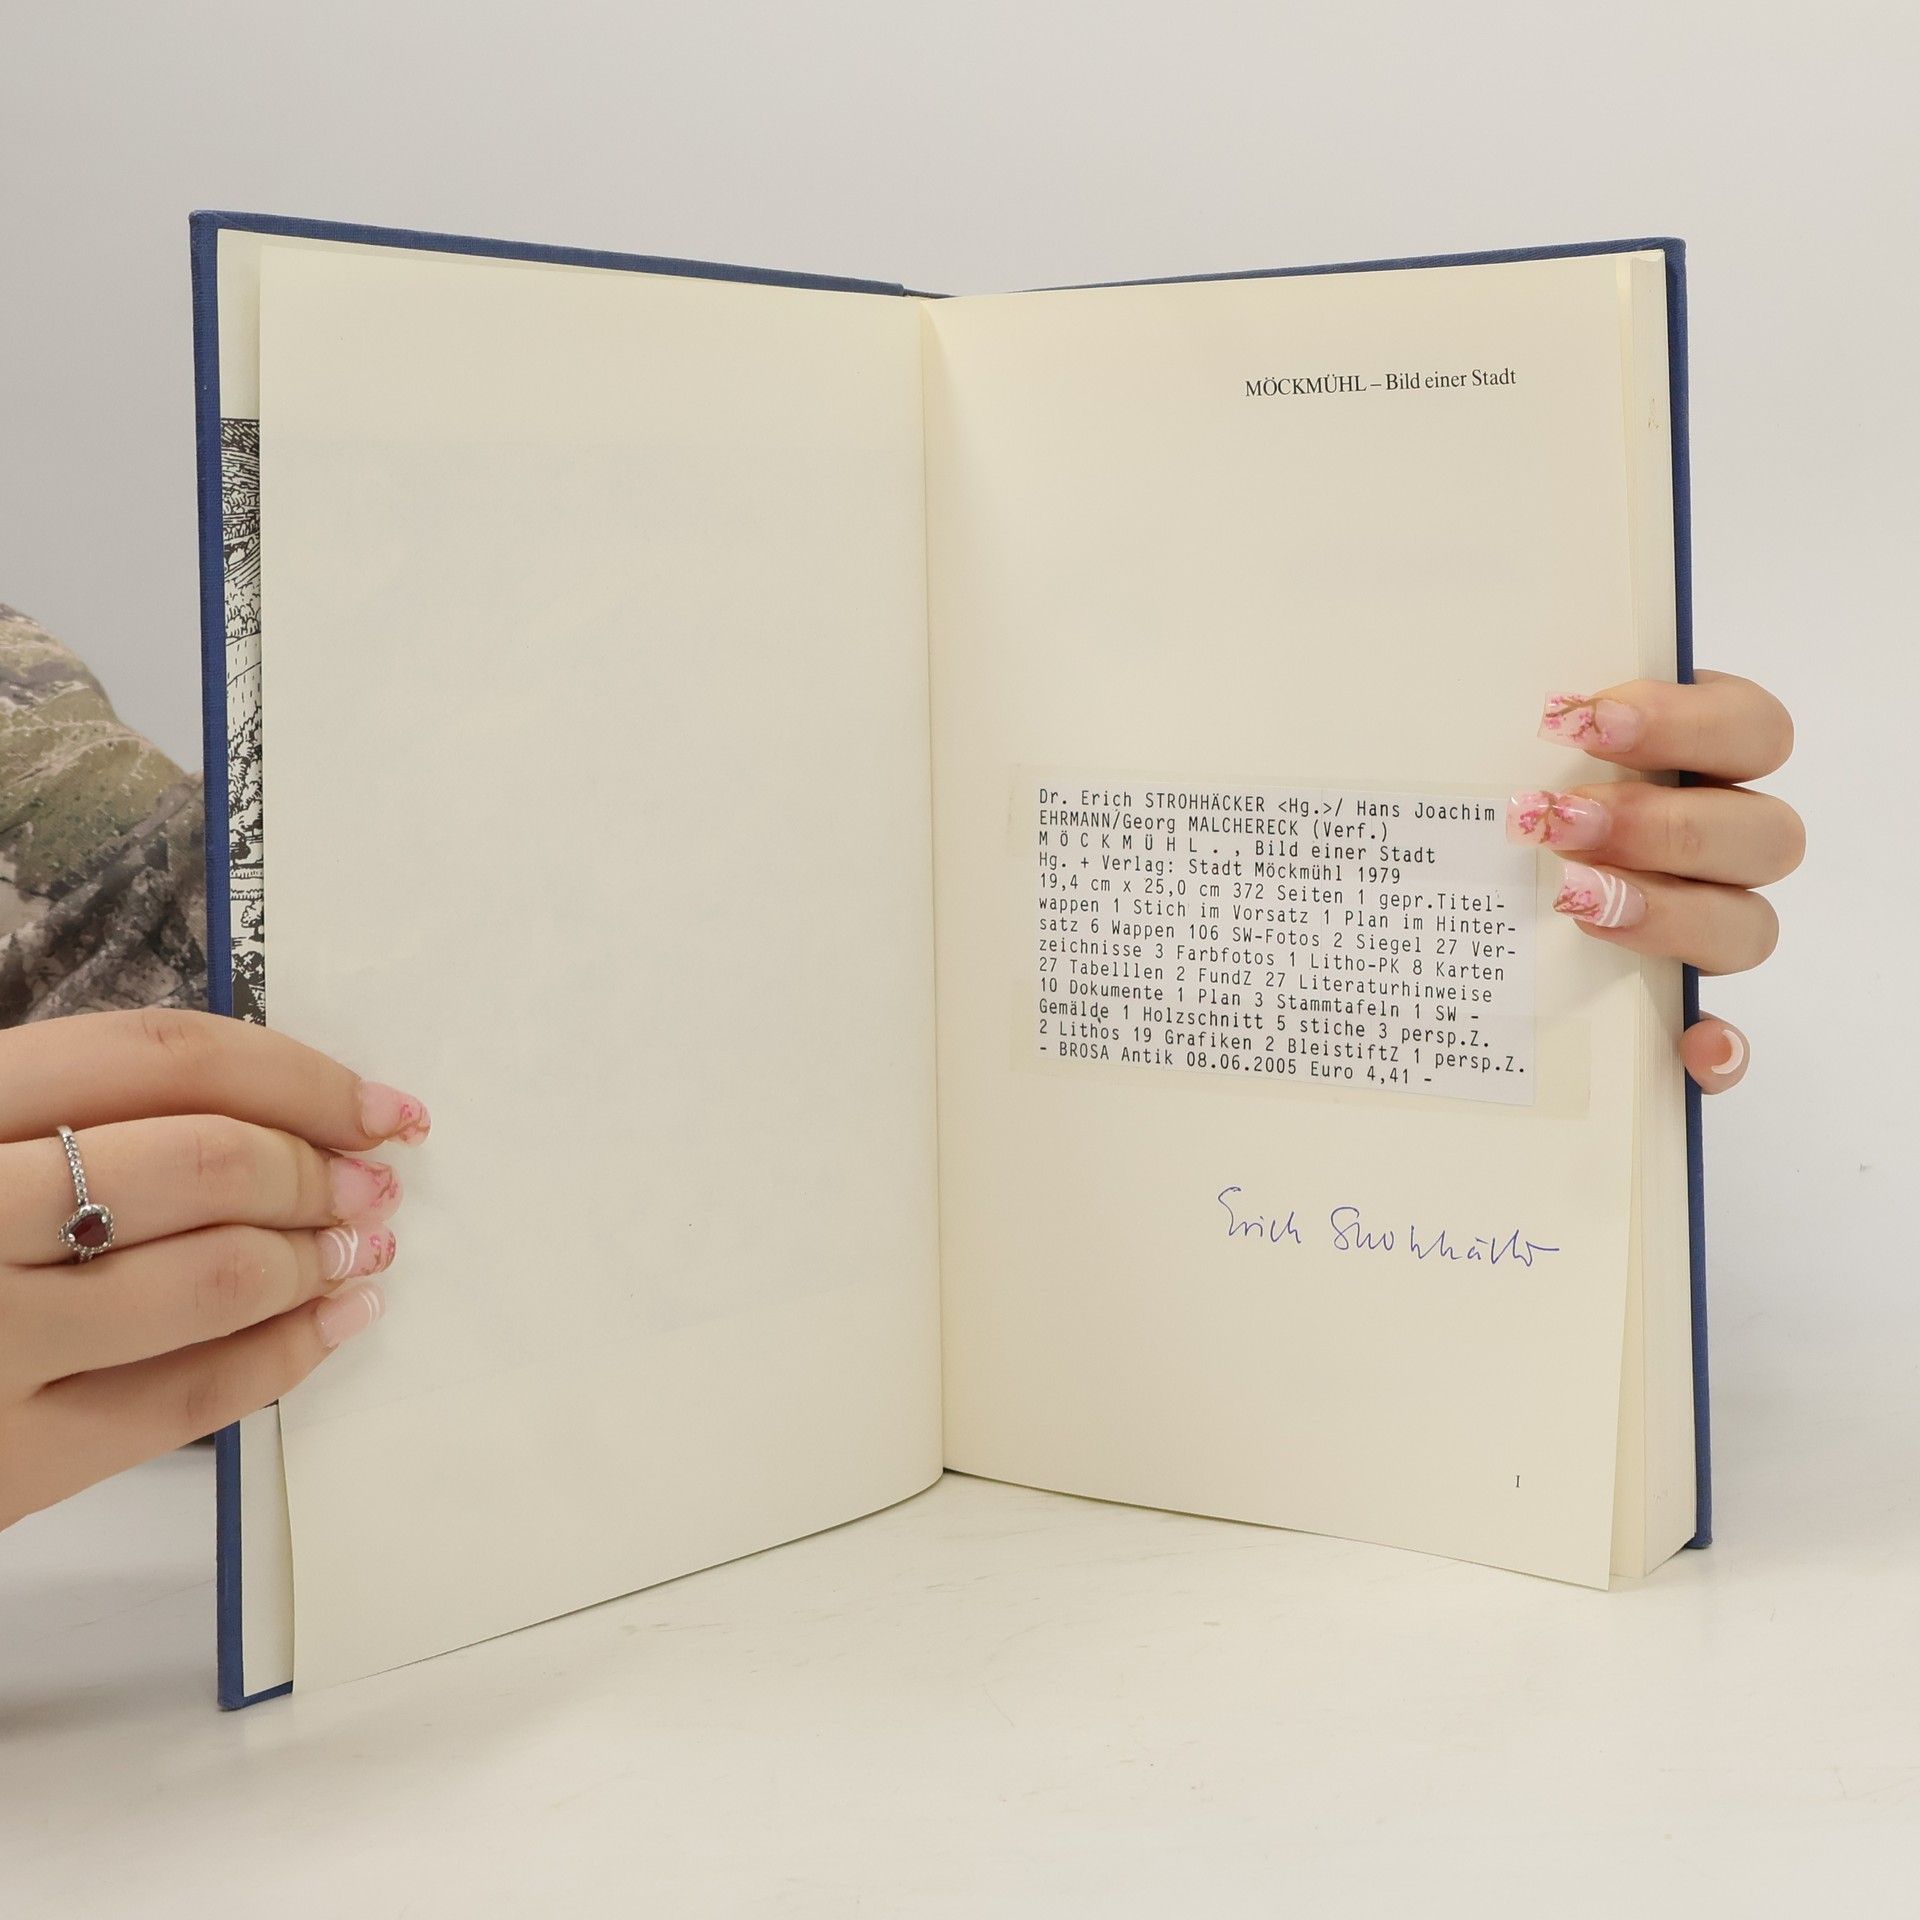 MÖCKMÜHL – Bild einer Stadt
Dr. Erich STROHHÄCKER <Hg.>/ Hans Joachim
EHRMANN/Georg MALCHERECK (Verf.)
M Ö C K M Ü H L . , Bild einer Stadt
Hg. + Verlag: Stadt Möckmühl 1979
19,4 cm x 25,0 cm 372 Seiten 1 gepr.Titel-
wappen 1 Stich im Vorsatz 1 Plan im Hinter-
satz 6 Wappen 106 SW-Fotos 2 Siegel 27 Ver-
zeichnisse 3 Farbfotos 1 Litho-PK 8 Karten
27 Tabelllen 2 FundZ 27 Literaturhinweise
10 Dokumente 1 Plan 3 Stammtafeln 1 SW -
Gemälde 1 Holzschnitt 5 stiche 3 persp.Z.
2 Lithos 19 Grafiken 2 BleistiftZ 1 persp.Z.
- BROSA Antik 08.06.2005 Euro 4,41 -
Erich Strohhäcker
I